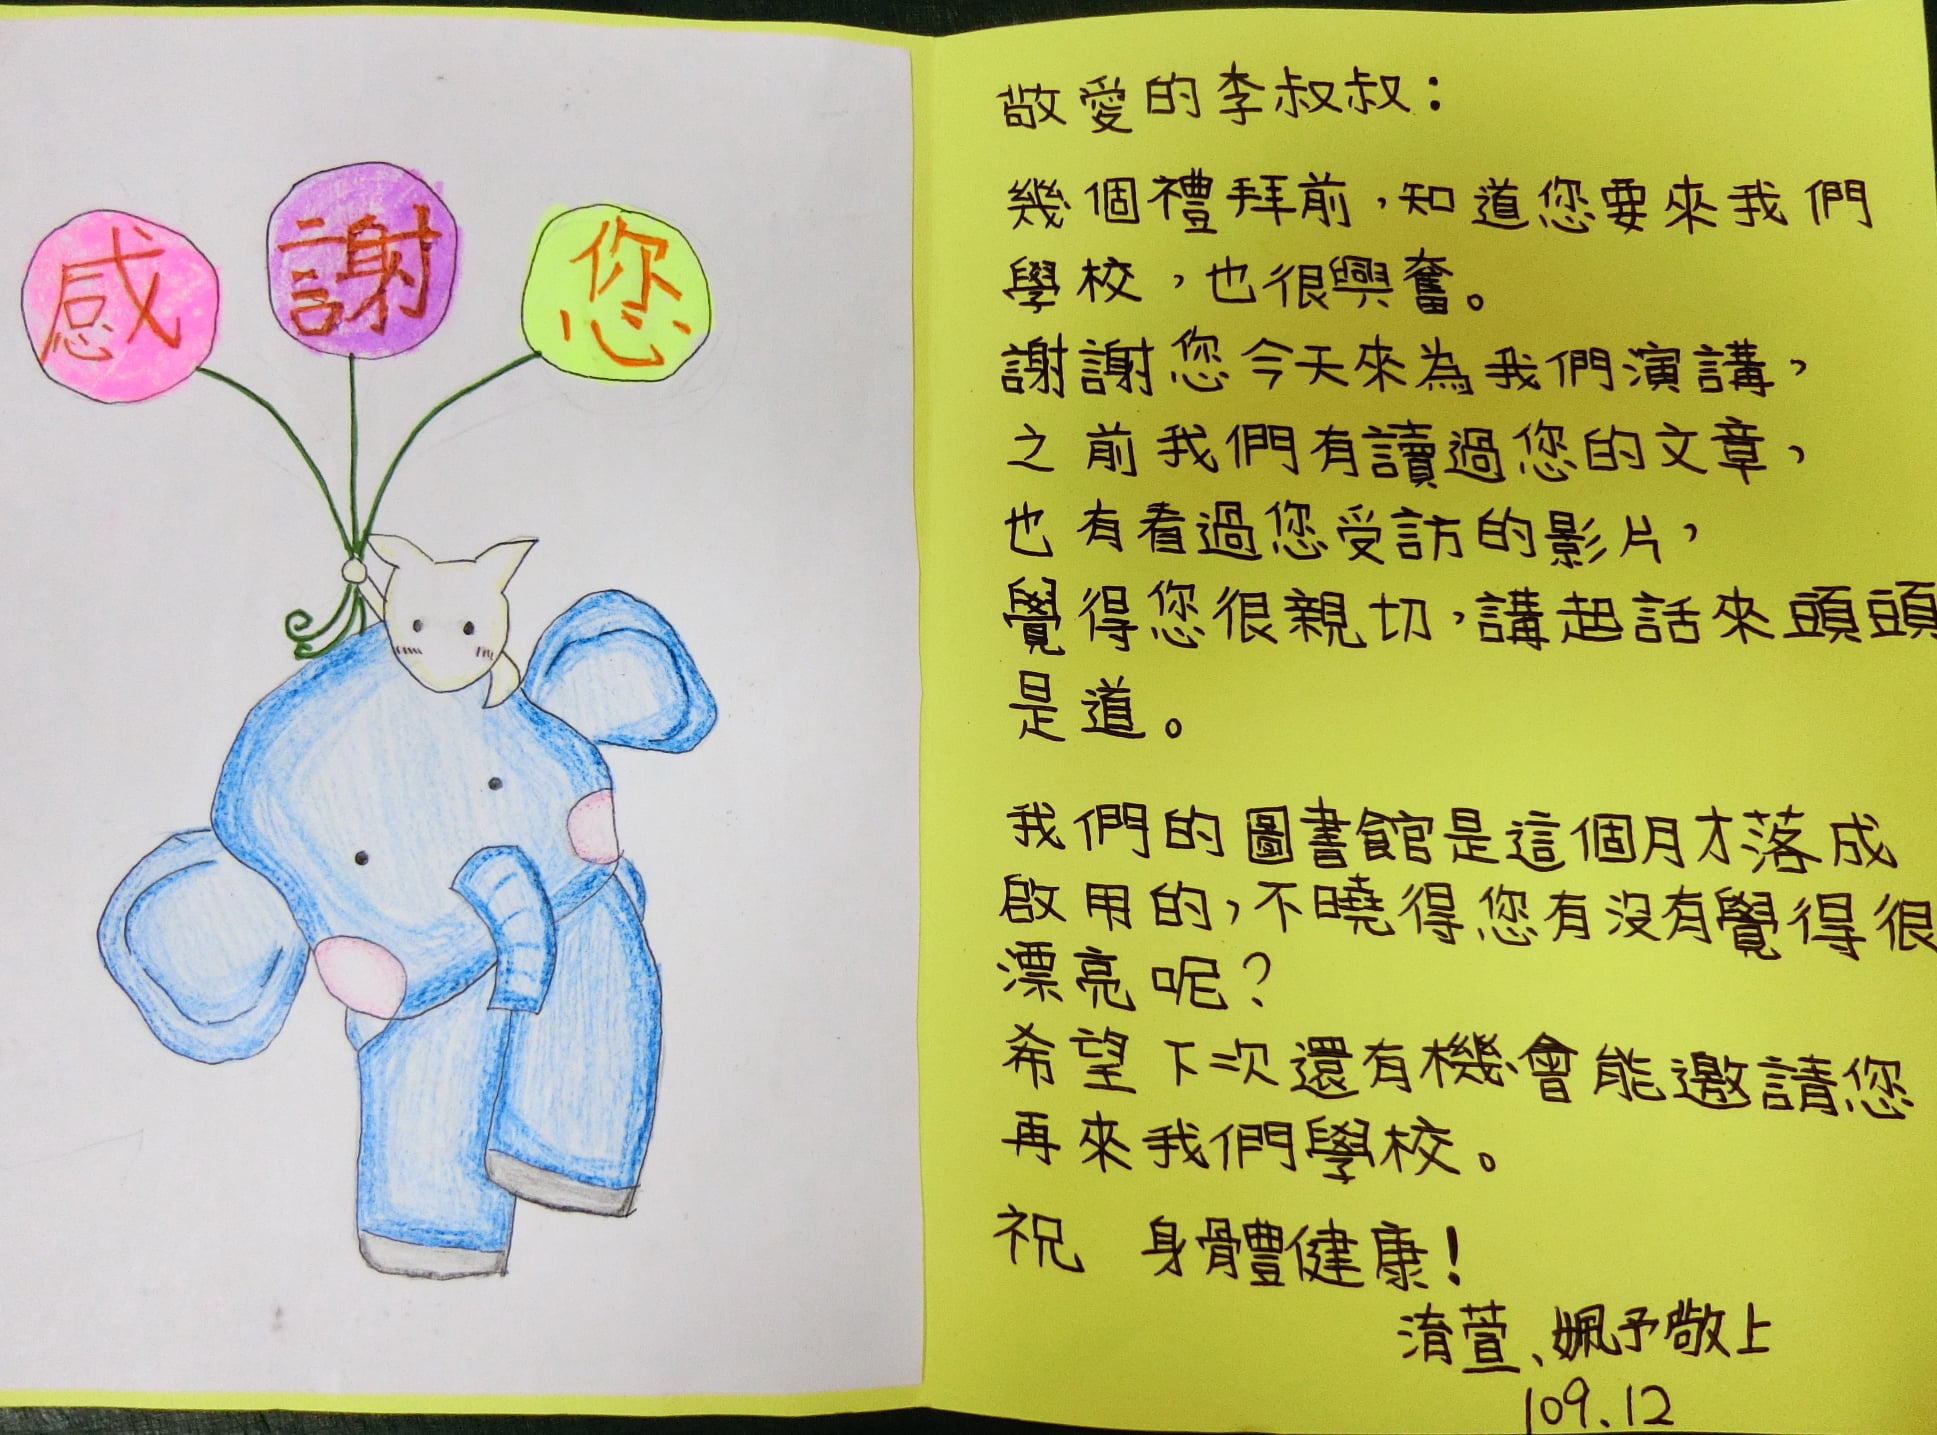 感謝您
敬愛的李叔叔：
幾個禮拜前，知道您要來我們
學校，也很興奮。
謝謝您今天來為我們演講，
之前我們有讀過您的文章，
也有看過您受訪的影片，
覺得您很親切，講起話來頭頭
是道。
我們的圖書館是這個月才落成
啟用的，不曉得您有沒有覺得很
漂亮呢？
希望下次還有機會能邀請您
再來我們學校。
祝 身體健康！
淯萱、姵予敬上
109.12